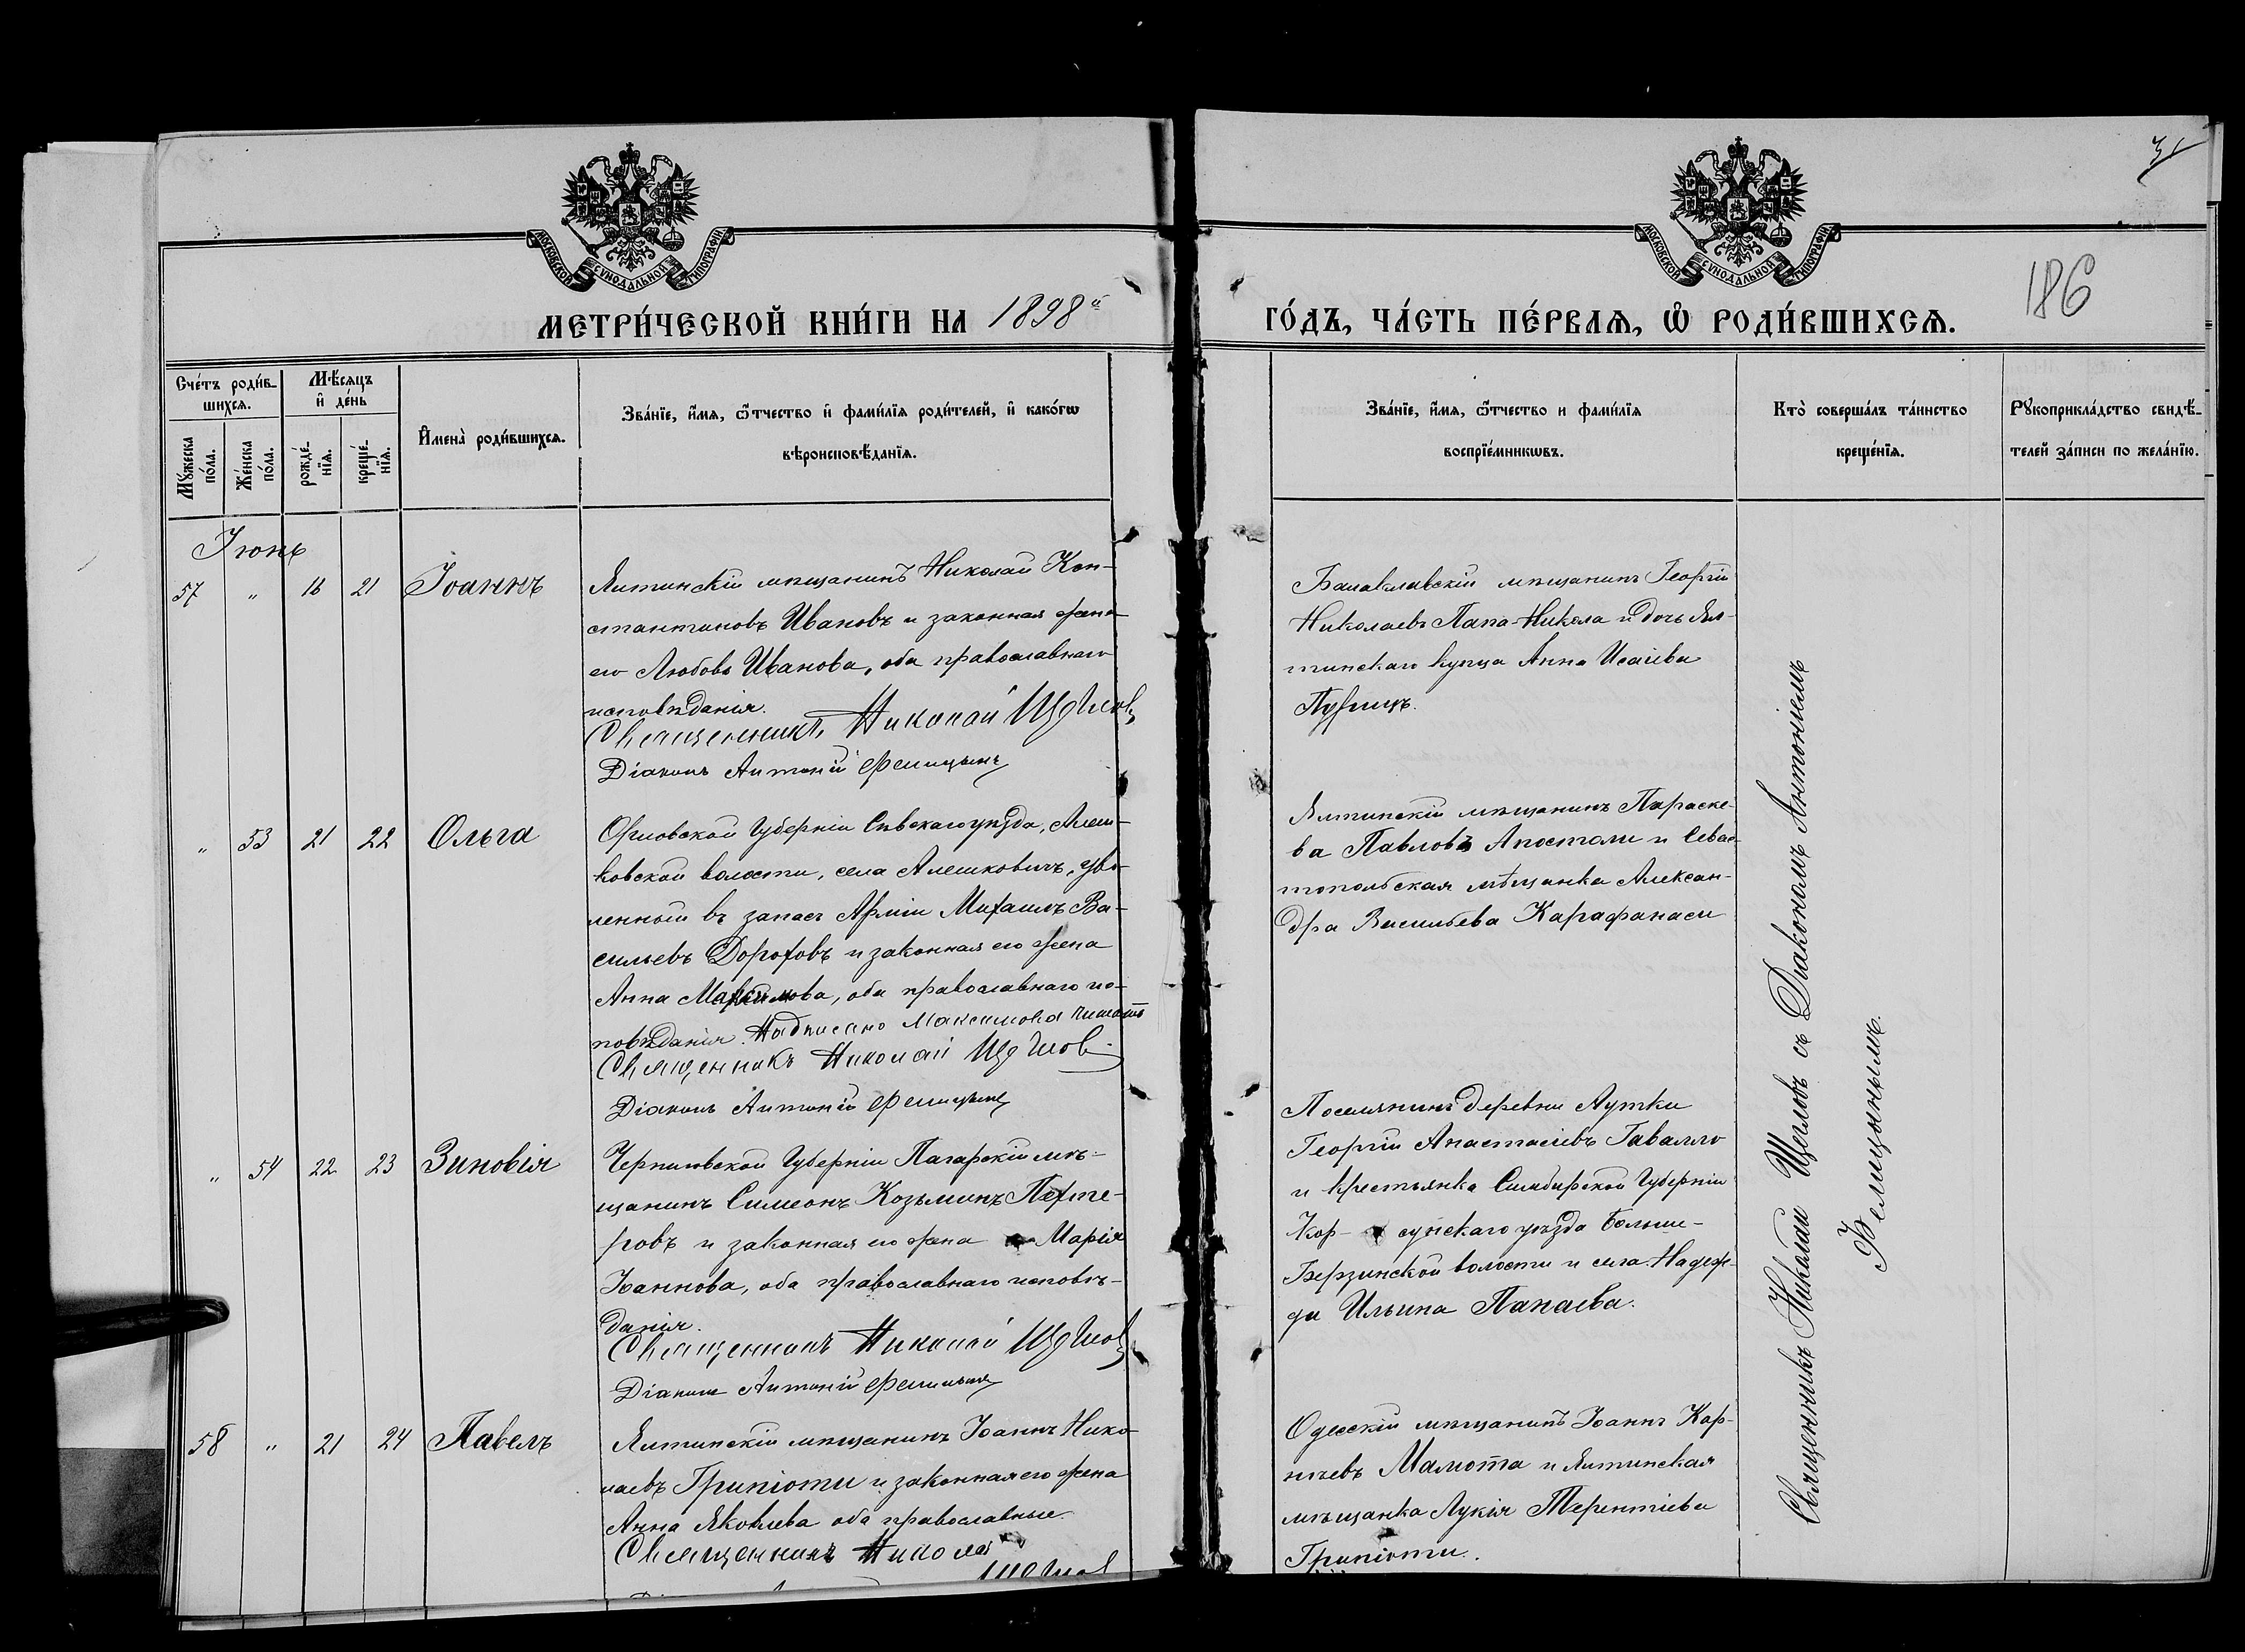 31
МОСКОВСКОЙ СУНОДАЛЬНОЙ ТИПОГРАФІИ
МОСКОВСКОЙ СУНОДАЛЬНОЙ ТИПОГРАФІИ
186
МЕТРИ́ЧЕСКОЙ КНИ́ГИ НА 1898й
ГО́ДЪ, ЧА́СТЬ ПЕ́РВАЯ, Ѡ҆ РОДИ́ВШИХСЯ.
Сче́тъ роди́в-
шихся.
Мѣ́сяцъ
и҆ де́нь
Мꙋ́жеска
по́ла.
Же́нска
по́ла.
рожде́-
нїя.
креще́-
нїя.
И҆мена̀ роди́вшихся.
Зва́нїе, и҆́мя, ѻ҆́тчество и҆ фами́лїя роди́телей, и҆ како́гѡ
вѣроисповѣ́данїя.
Зва́нїе, и҆́мя, ѻ҆́тчество и фами́лїя
воспрїе́мникѡвъ.
Кто̀ соверша́лъ та́инство
креще́нїя.
Рꙋкоприкла́дство свидѣ́-
телей за́писи по жела́нїю.
Іюнь
57 " 16 21 Іоаннъ
Ялтинскій мѣщанинъ Николай Кон-
стантиновъ Ивановъ и законная жена
его Любовь Иванова, оба православнаго
исповѣданія.
Священникъ Николай Щегловъ
Діаконъ Антоній Фелицынъ
Балаклавскій мѣщанинъ Георгій
Николаевъ Папа-Никола и дочь Ял-
тинскаго купца Анна Исаіева
" 53 21 22 Ольга
Орловской Губерніи Сѣвскаго уѣзда, Алеш-
ковской волости, села Алешковичъ, уво-
ленный въ запасъ Арміи Михаилъ Ва-
сильевъ Дорофовъ и законная его жена
Анна Максимова, оба православнаго ис-
повѣданія. Надписано Максимова читать
Священникъ Николай Щегловъ
Діаконъ Антоній Фелицынъ
Ялтинскій мѣщанинъ Параске-
ва Павловъ Апостоли и Севас-
топольская мѣщанка Алексан-
дра Васильева Карафанаси
" 54 22 23 Зиновія
Черниговской Губерніи Пагарскій мѣ-
щанинъ Симеонъ Козьминъ
и законная его жена Марія
Іоаннова, оба православнаго исповѣ-
данія.
Священникъ Николай Щегловъ
Діаконъ Антоній Фелицынъ
Поселянинъ деревни Аутки
Георгій Анастасіевъ Гавалло
и крестьянка Симбирской Губерніи
Кор- сунскаго уѣзда Больше-
Березинской волости и села Надеж-
да Ильина Папаева.
58 " 21 24 Павелъ
Ялтинскій мѣщанинъ Іоаннъ Нико-
лаевъ Грипіоти и законная его жена
Анна Яковлева оба православные.
Священникъ Николай
Щегловъ
Одесскій мѣщанинъ Іоаннъ Кар-
Мамота и Ялтинская
мѣщанка Лукія Терентіева
Грипіоти.
Священникъ Николай Щегловъ съ Діакономъ Антоніемъ
Фелицынымъ.